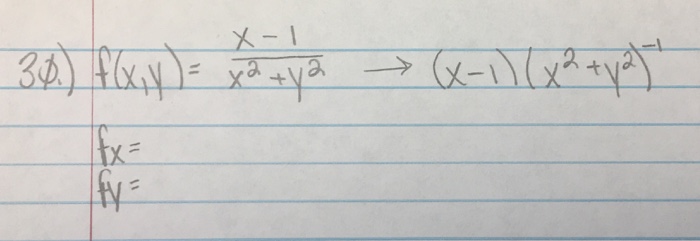 30.) f(x,y) = x-1 / x²+y² → (x-1)(x²+y²)⁻¹
fx=
fy=